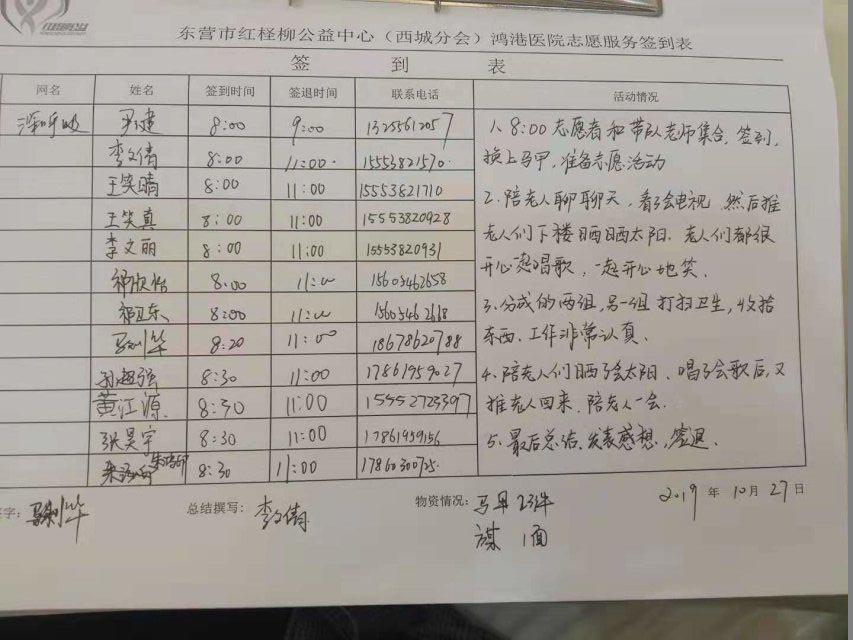 东营市红柽柳公益中心（西城分会）鸿港医院志愿服务签到表
签 到 表
网名 姓名 签到时间 签退时间 联系电话 活动情况
深呼吸 8:00 9:00 13255612057
李文倩 8:00 11:00 15553821570
王笑晴 8:00 11:00 15553821710
王笑真 8:00 11:00 15553820928
李文丽 8:00 11:00 15553820931
祁欣怡 8:00 11:00 15605462658
祁卫东 8:00 11:00
8:20 11:00 18678620788
孙超强 8:30 11:00 17861959027
黄江源 8:30 11:00 15552723397
张昊宇 8:30 11:00 17861959156
8:30 11:00
1、8:00志愿者和带队老师集合，签到，
换上马甲，准备志愿活动
2、陪老人聊聊天，看了会电视，然后推
老人们下楼晒晒太阳、老人们都很
开心一起唱歌，一起开心地笑、
3、分成的两组，另一组打扫卫生，收拾
东西、工作非常认真、
4、陪老人们晒了会太阳、唱了会歌后，又
推老人回来，陪老人一会、
5、最后总结、发表感想、签退、
签字：
总结撰写：李文倩
物资情况：马甲23件
旗 1面
2019 年 10 月 27 日